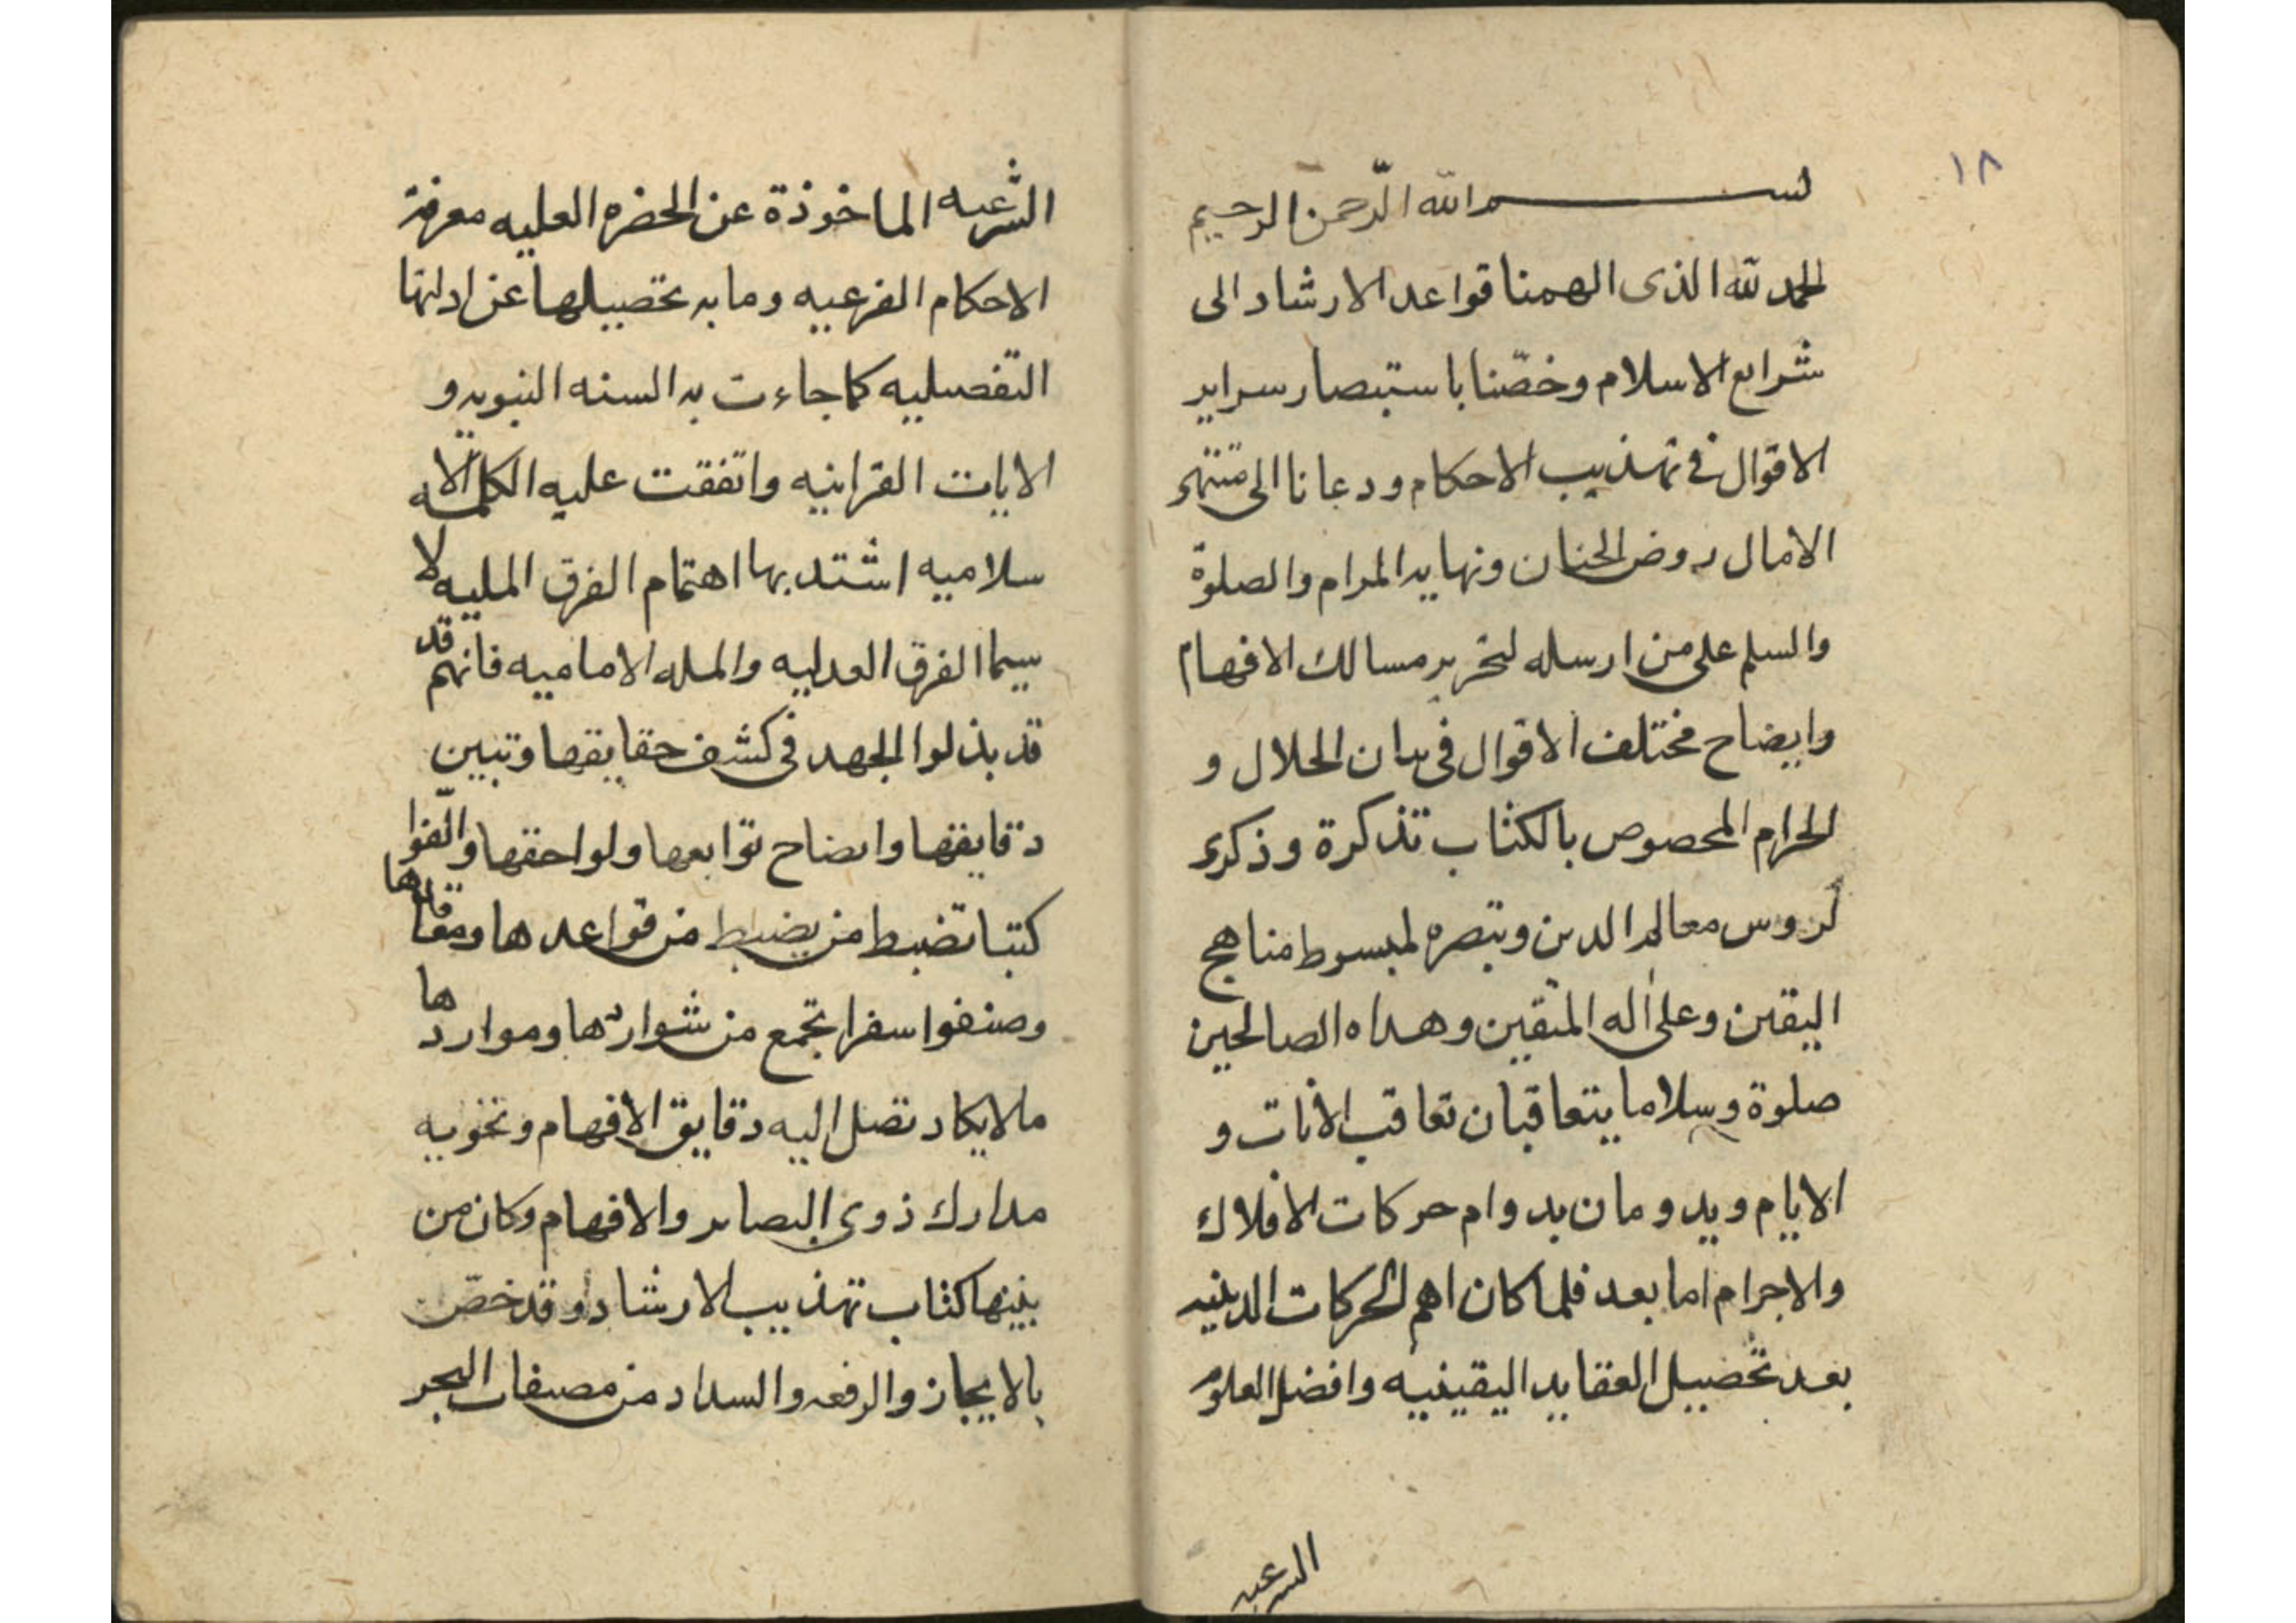 ١٨
بسم الله الرّحمن الرحيم
الحمد لله الذى الهمنا قواعد الارشاد الى
شرايع الاسلام وخصّنا باستبصار سراير
الاقوال فى تهذيب الاحكام ودعانا الى منتهى
الامال روض الجنان ونهايه المرام والصلوة
والسلم على من ارسله لتحرير مسالك الافهام
وايضاح مختلف الاقوال فى بيان الحلال و
الحرام المخصوص بالكتاب تذكرة وذكرى
لدروس معالم الدين وتبصره لمبسوط مناهج
اليقين وعلى اله المتقين وهداه الصالحين
صلوة وسلاما يتعاقبان تعاقب الانات و
الايام ويدومان بدوام حركات الافلاك
والاجرام اما بعد فلما كان اهم الحركات الدينيه
بعد تحصيل العقايد اليقينيه وافضل العلوم
الشرعيه
الشرعيه الماخوذة عن الحضره العليه معرفة
الاحكام الفرعيه وما به تحصيلها عن ادلتها
التفصيليه كما جاءت به السنه النبويه و
الايات القرانيه واتفقت عليه الكلمه الا
سلاميه اشتد بها اهتمام الفرق المليه لا
سيما الفرق العدليه والمله الاماميه فانهم قد
قد بذلوا الجهد فى كشف حقايقها وتبين
دقايقها وايضاح توابعها ولواحقها والّفوا
كتبا تضبط من يضبط من قواعدها ومقاصدها
وصنفوا سفرا تجمع من شواردها ومواردها
ما لا يكاد تصل اليه دقايق الافهام وتحويه
مدارك ذوى البصاير والافهام وكان من
بينها كتاب تهذيب الارشاد وقد خصّ
بالايجاز والرفعه والسداد من مصنفات البحر